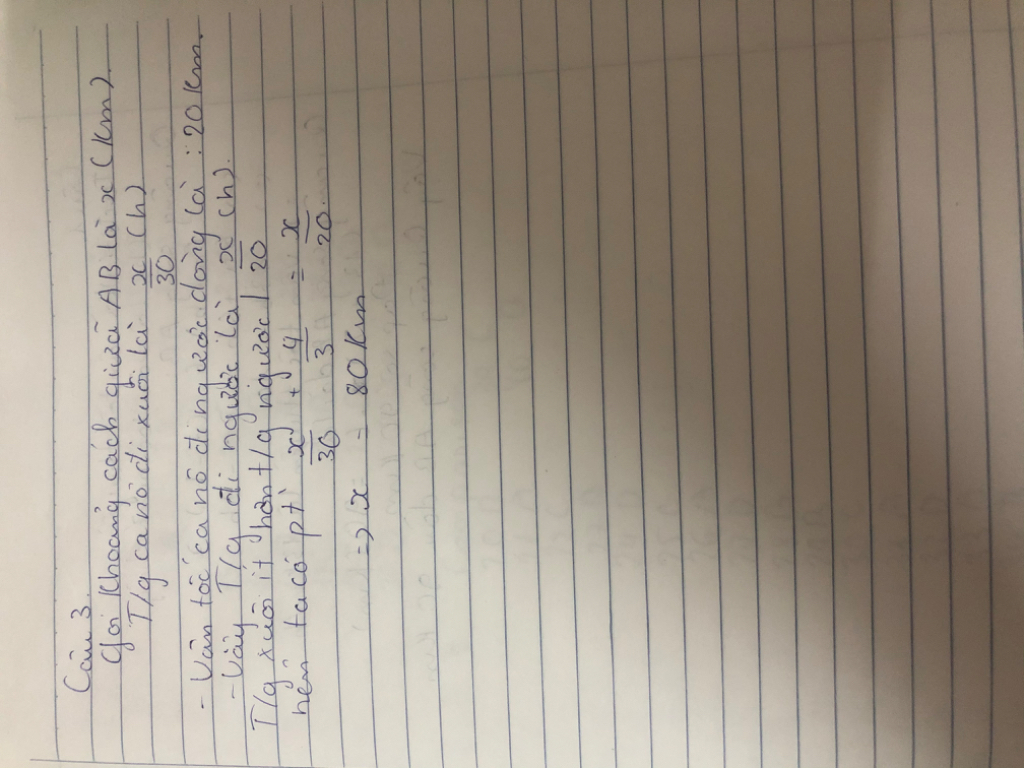 Câu 3.
Gọi Khoảng cách giữa AB là x (Km).
T/g ca nô đi xuôi là x/30 (h)
- Vận tốc ca nô đi ngược dòng là : 20 Km.
- Vậy T/g đi ngược là x/20 (h).
T/g xuôi ít hơn t/g ngược
nên ta có pt x/30 + 4/3 = x/20.
=> x = 80 Km